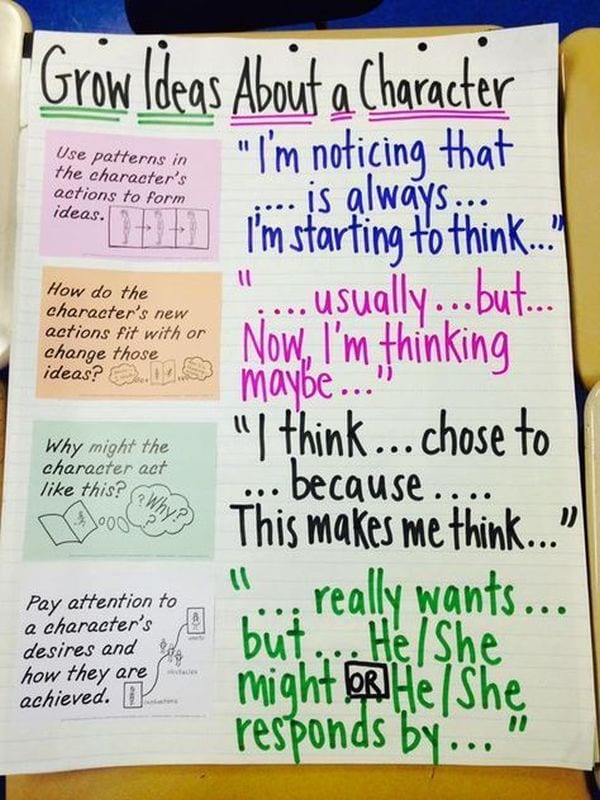 Grow Ideas About a Character
Use patterns in
the character's
actions to form
ideas.
"I'm noticing that
.... is always...
I'm starting to think..."
How do the
character's new
actions fit with or
change those
ideas?
".... usually...but...
Now, I'm thinking
maybe..."
Why might the
character act
like this?
? Why?
?
"I think... chose to
... because ....
This makes me think..."
Pay attention to
a character's
desires and
how they are
achieved.
wants
obstacles
"... really wants...
but... He/She
might... OR He/She
responds by..."